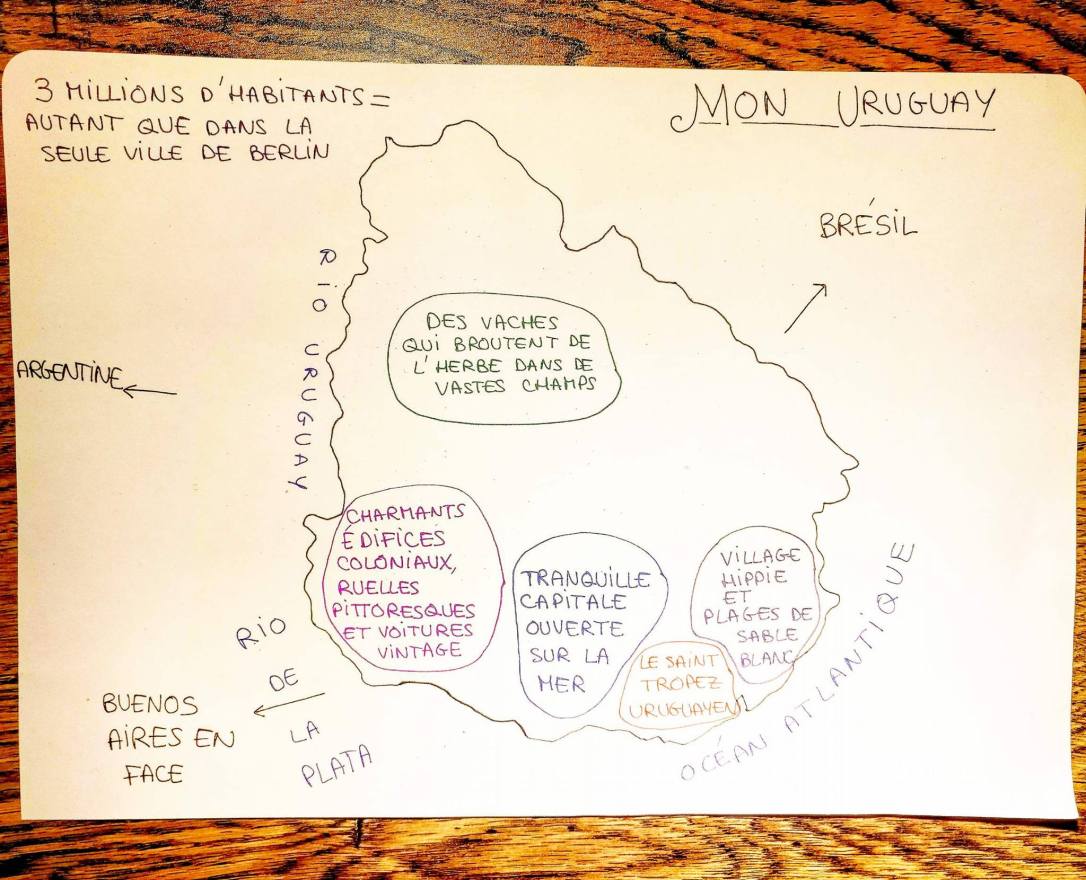 3 MILLIONS D'HABITANTS =
AUTANT QUE DANS LA
SEULE VILLE DE BERLIN
MON URUGUAY
BRÉSIL
RIO URUGUAY
ARGENTINE
DES VACHES
QUI BROUTENT DE
L'HERBE DANS DE
VASTES CHAMPS
CHARMANTS
ÉDIFICES
COLONIAUX,
RUELLES
PITTORESQUES
ET VOITURES
VINTAGE
TRANQUILLE
CAPITALE
OUVERTE
SUR LA
MER
VILLAGE
HIPPIE
ET
PLAGES DE
SABLE
BLANC
LE SAINT
TROPEZ
URUGUAYEN
RIO
DE
LA
PLATA
BUENOS
AIRES EN
FACE
OCÉAN ATLANTIQUE